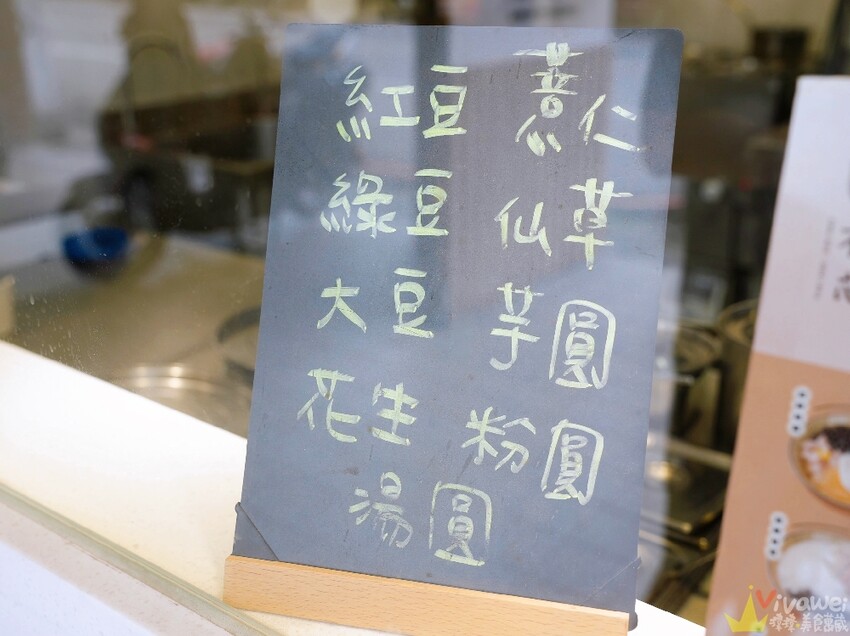 紅豆 薏仁
綠豆 仙草
大豆 芋圓
花生 粉圓
湯圓
Vivawei